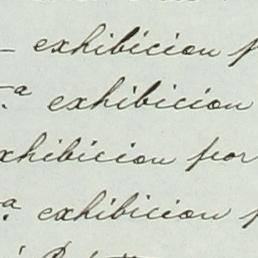 exhibicion
.ª exhibicion
xhibicion por
ª exhibicion